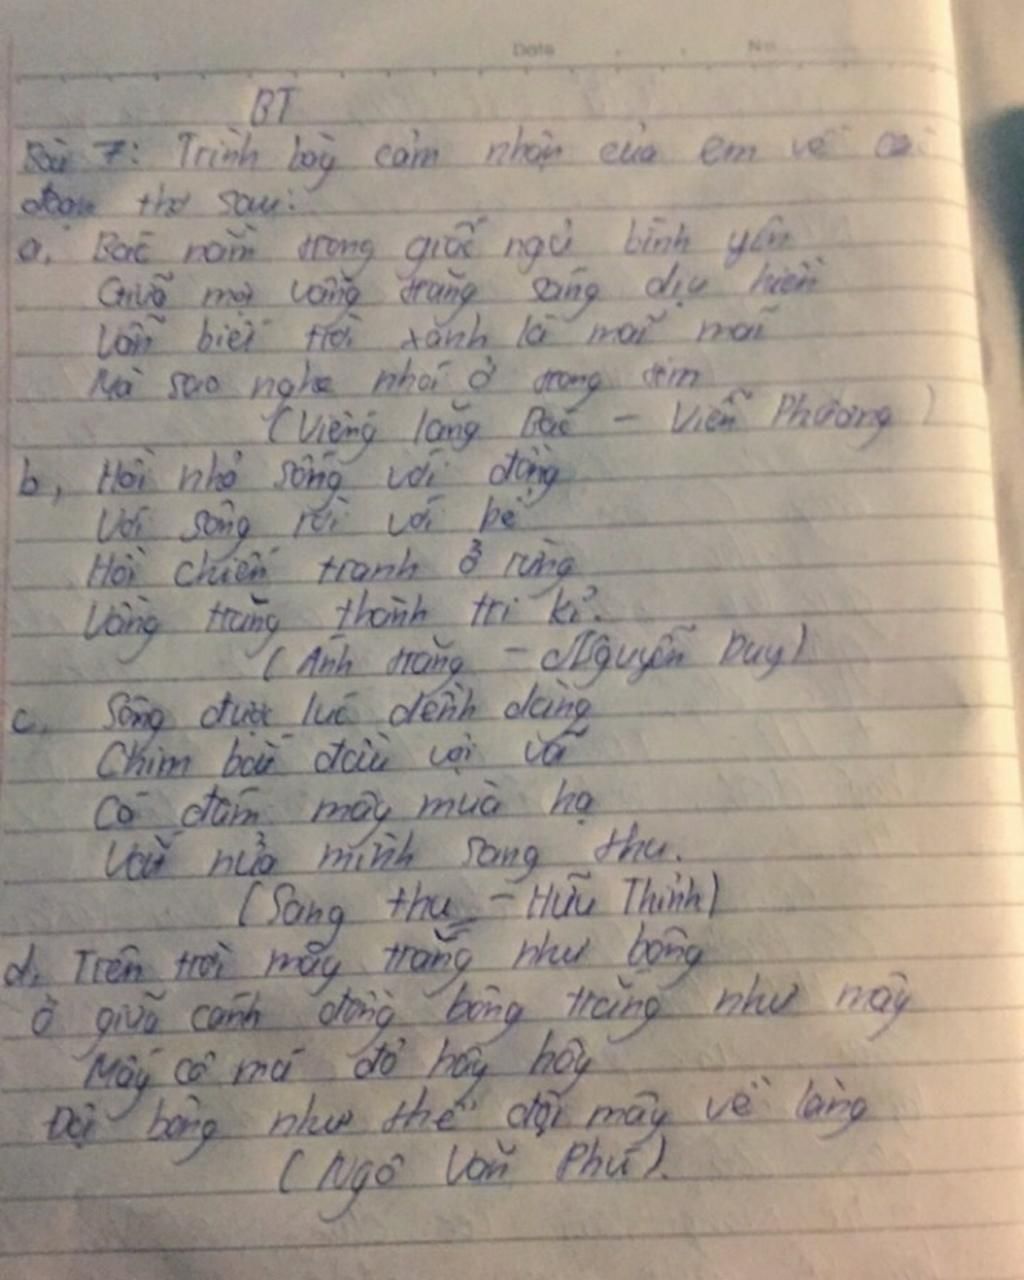 Date No
BT
Bài 7: Trình bày cảm nhận của em về các
đoạn thơ sau:
a, Bác nằm trong giấc ngủ bình yên
Giữa một vầng trăng sáng dịu hiền
Vẫn biết trời xanh là mãi mãi
Mà sao nghe nhói ở trong tim
(Viếng lăng Bác - Viễn Phương)
b, Hồi nhỏ sống với đồng
Với sông rồi với bể
Hồi chiến tranh ở rừng
Vầng trăng thành tri kỉ.
(Ánh trăng - Nguyễn Duy)
c, Sông được lúc dềnh dàng
Chim bắt đầu vội vã
Có đám mây mùa hạ
Vắt nửa mình sang thu.
(Sang thu - Hữu Thỉnh)
d, Trên trời mây trắng như bông
Ở giữa cánh đồng bông trắng như mây
Mấy cô má đỏ hây hây
Đội bông như thể đội mây về làng
(Ngô Văn Phú).